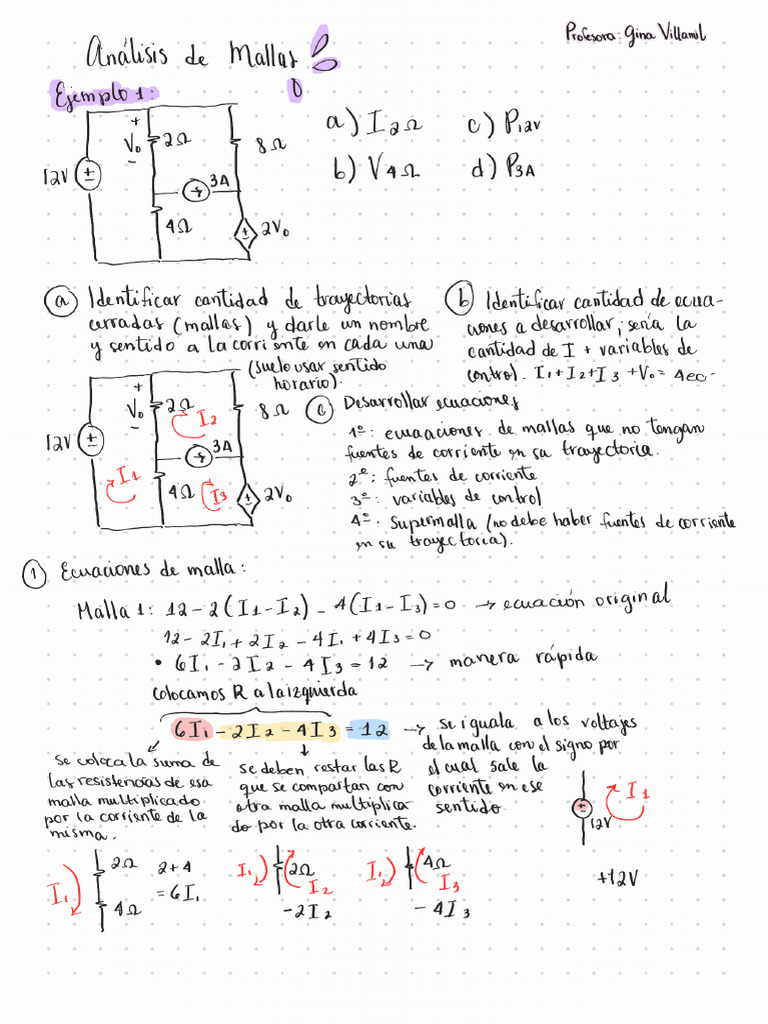 Análisis de Mallas
Profesora: Gina Villamil
Ejemplo 1:
a) I2Ω
c) P12V
b) V4Ω
d) P3A
+
V₀
-
2Ω
8Ω
12V
3A
4Ω
2V₀
ⓐ Identificar cantidad de trayectorias
cerradas (mallas) y darle un nombre
y sentido a la corriente en cada una
(suelo usar sentido
horario).
ⓑ Identificar cantidad de ecua-
ciones a desarrollar, sería la
cantidad de I + variables de
control. I1+I2+I3+V₀=4ec.
+
V₀
-
2Ω
I2
8Ω
12V
3A
I1
4Ω
I3
2V₀
ⓒ Desarrollar ecuaciones
1º: ecuaciones de mallas que no tengan
fuentes de corriente en su trayectoria.
2º: fuentes de corriente
3º: variables de control
4º: supermalla (no debe haber fuentes de corriente
en su trayectoria).
① Ecuaciones de malla:
Malla 1: 12-2(I1-I2)-4(I1-I3)=0 → ecuación original
12-2I1+2I2-4I1+4I3=0
• 6I1-2I2-4I3=12 → manera rápida
colocamos R a la izquierda
6I1-2I2-4I3=12 → se iguala a los voltajes
de la malla con el signo por
el cual sale la
corriente en ese
sentido.
se coloca la suma de
las resistencias de esa
malla multiplicado
por la corriente de la
misma.
se deben restar las R
que se compartan con
otra malla multiplica
do por la otra corriente.
I1
12V
+12V
I1
2Ω
4Ω
2+4
=6I1
I1
2Ω
I2
-2I2
I1
4Ω
I3
-4I3